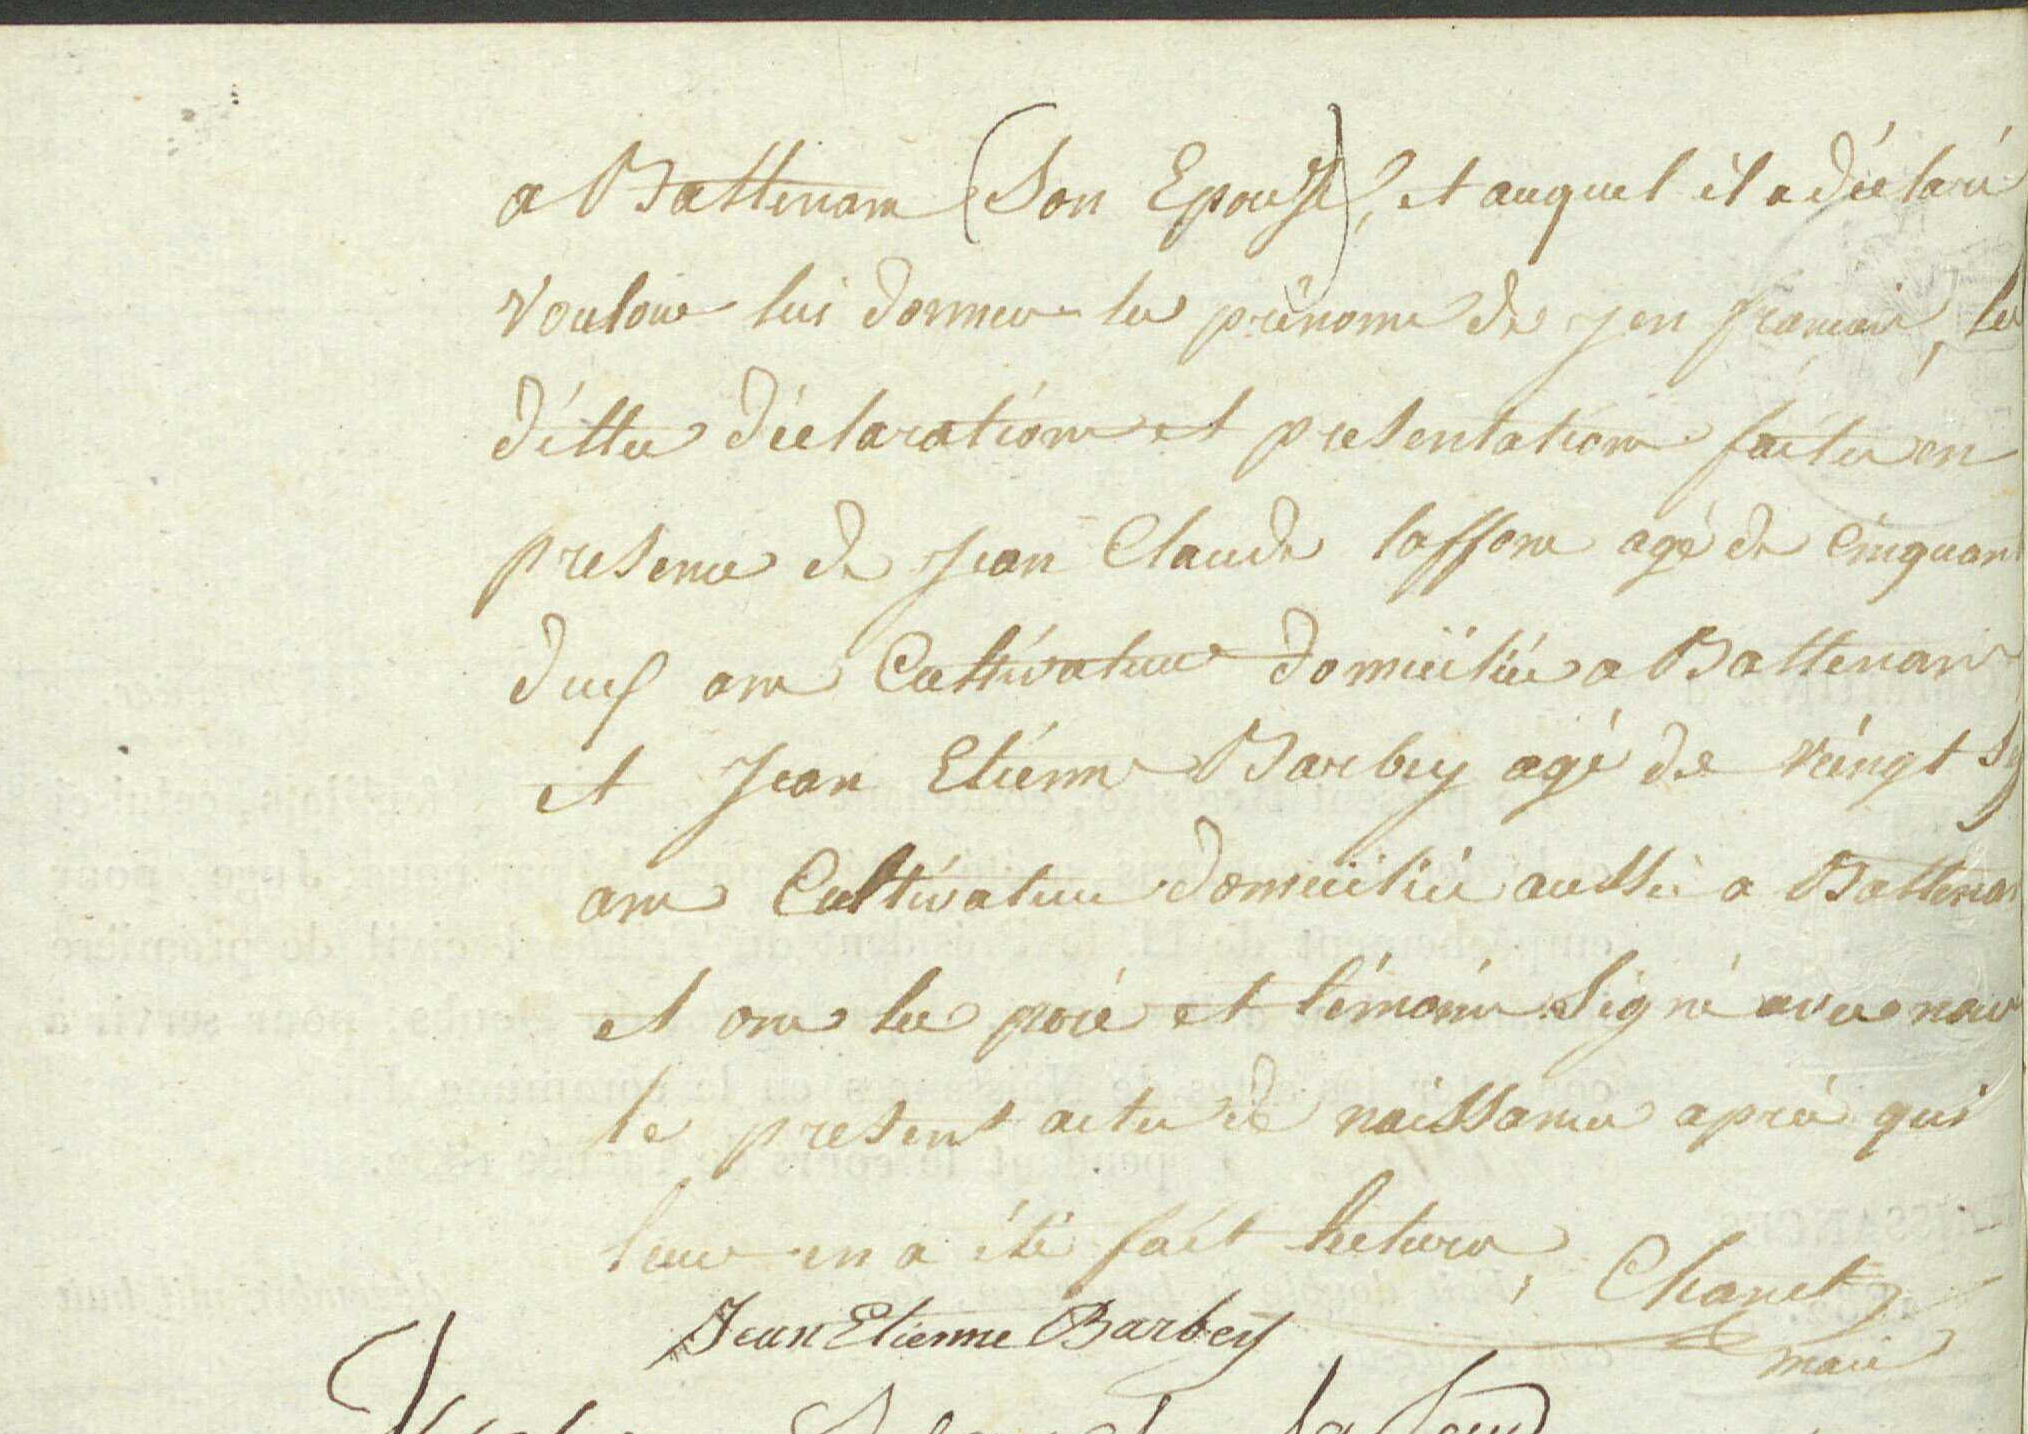 a Battenans (Son Epouse), et auquel il a déclaré
Vouloir lui donner les prénoms de Jen francois, les
dittes déclarations et presentations faites en
presence de Jean Claude laffon agé de Cinquan
deux ans Cultivateur domicilié a Battenans
et Jean Etienne Barbey agé de vingt Six
ans Cultivateur domicilié aussi a Battenan
et ont les père et témoins Signé avec nous
le present acte de naissance après qui
leur en a été fait lecture,
Chanet
Jean Etienne Barbey
maire